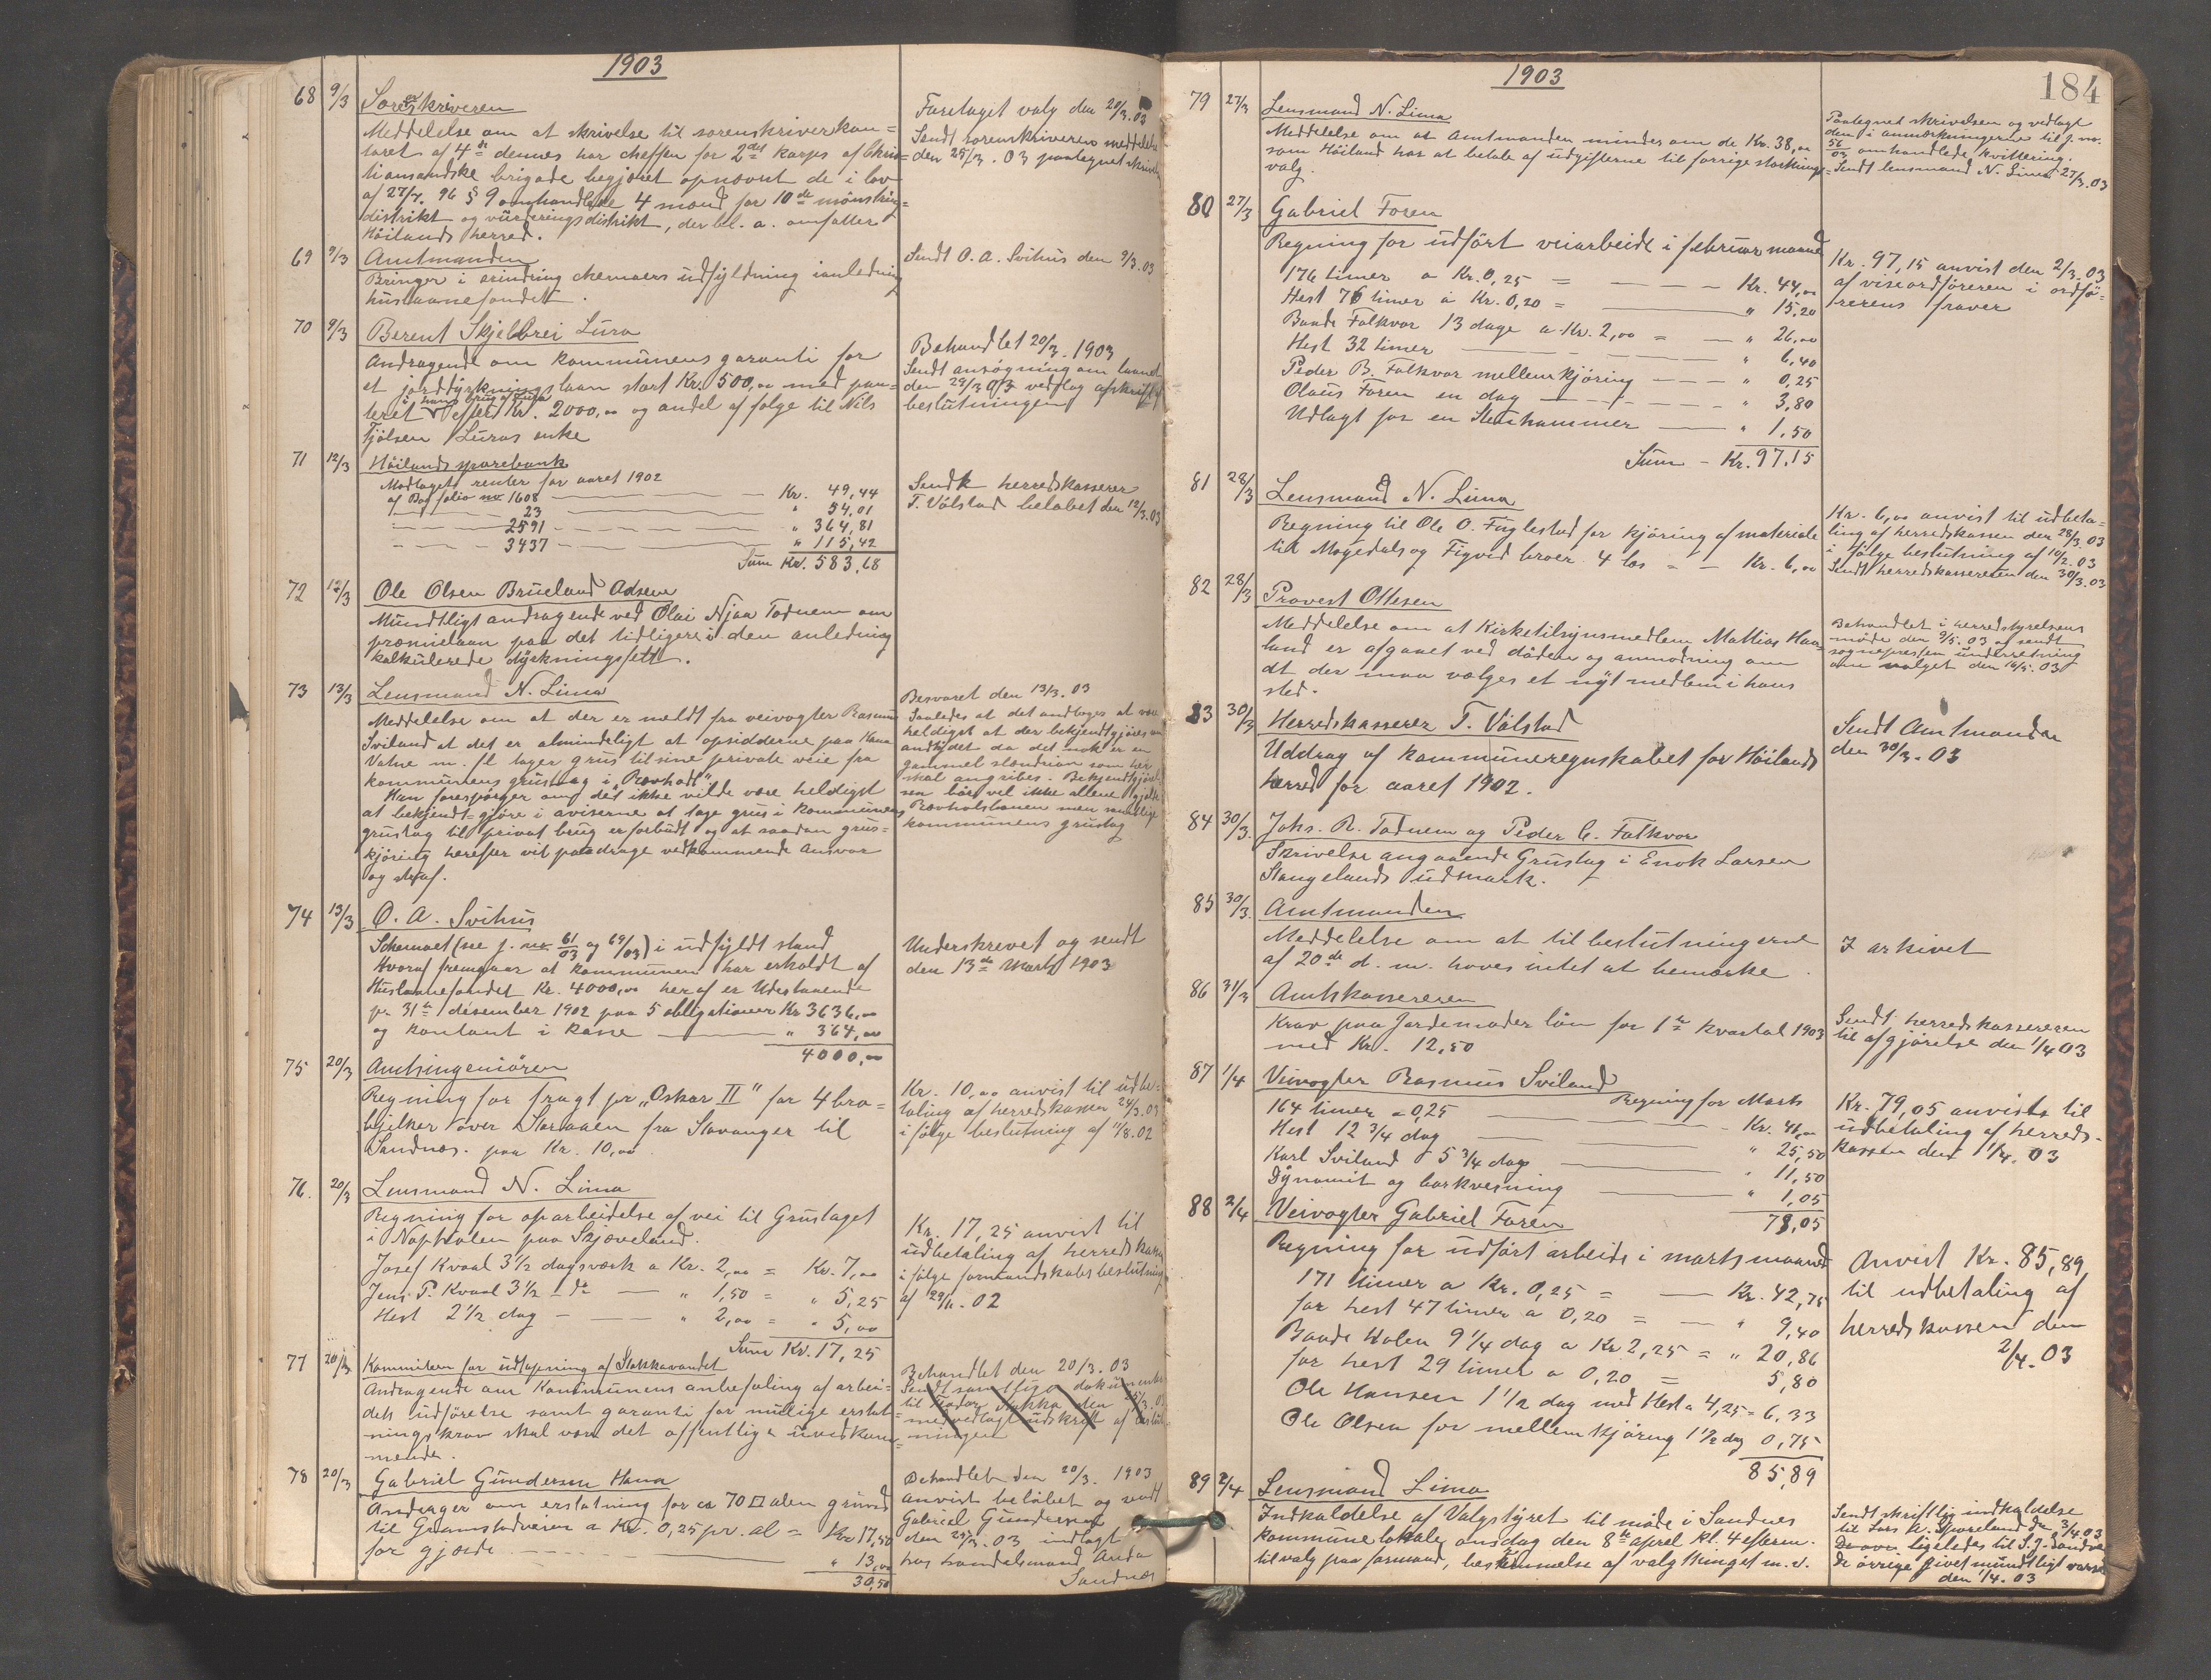 1903
68 9/3 Sorenskriveren
Meddelelse om at skrivelse til sorenskriverkon=
toret af 4de dennes har cheffen for 2det korps af Chris=
tiansandske brigade begjæret opnævnt de i lov
af 27/7. 96 § 9 omhandlede 4 mænd for 10de mønstrings=
distrikt og vurderingsdistrikt, der bl. a. omfatter
Höilands herred.
Foretaget valg den 20/3. 03
Sendt sorenskriveren meddelelse
den 25/3. 03 paategnet skrivelsen
69 9/3 Amtmanden
Bringer i erindring skemaers udfyldning ianledning
huslaanefondet.
Sendt O. A. Svihus den 9/3. 03
70 9/3 Berent Skjelbrei Lura
Andragende om kommunens garanti for
et jorddyrkningslaan stort Kr. 500,00 med pan=
i hans brug af Lura
teret efter Kr. 2000,00 og andel af følge til Nils
Tjölsen Luras enke
Behandlet 20/3. 1903
Sendt ansögning om laanet
den 29/3 03 vedlag afskrift af
beslutningen
71 12/3 Höilands sparebank
Modtagets renter for aaret 1902
af Bog folio no. 1608 — Kr. 49,44
— 23 — " 54,01
— 2591 — " 364,81
— 3437 — " 115,42
Sum Kr. 583,68
Sendt herredskasserer
T. Válstad beløbet den 12/3. 03
72 12/3 Ole Olsen Brueland Adsen
Mündtligt andragende ved Olai Njaa Todnem om
præmielaan paa det tidligere i den anledning
kalkulerede dyrkningsfelt.
73 13/3 Lensmand N. Lima
Meddelelse om at der er meldt fra veivogter Rasmus
Sviland at det er almindeligt at opsidderne paa Hana
Vatne m. fl. tager grus til sine private veie fra
kommunens grustag i "Rovholt"
Han forespørger om det ikke vilde være heldigst
at bekjendt=gjøre i aviserne at tage grus i kommunens
grustag til privat brug er forbudt og at saadan grus=
kjøring herefter vil paadrage vedkommende Ansvar
og straf.
Besvaret den 13/3. 03
Saaledes at det andtages at være
heldigst at der bekjendtgjøres om
andet, det da det nok er en
gammel slendrian som her
skal angribes. Bekjendtgjørel=
sen bør vel ikke allene gjælde
Rovholttonen men samtlige
kommunens grustag
74 13/3 O. A. Svihus
Schemaet (see j. no. 61/03 og 69/03) i udfyldt stand
Hvoraf fremgaar at kommunen har erholdt af
Huslaanefondet Kr. 4000,00 heraf er Udestaaende
pr 31te desember 1902 paa 5 obligationer Kr 3636,00
og kontant i kasse — " 364,00
4000,00
Underskrevet og sendt
den 13de Marts 1903
75 20/3 Amtsingeniören
Regning for fragt pr „Oskar II" for 4 bro=
bjelker over Storaaen fra Stavanger til
Sandnæs. paa Kr. 10,00
Kr. 10,00 anvist til udbe=
taling af herredskassen 24/3. 03
i følge beslutning af 11/8. 02
76. 20/3 Lensmand N. Lima
Regning for oparbeidelse af vei til Grustaget
i Napholen paa Skjæveland.
Josef Kvaal 3 1/2 dagsværk a Kr. 2,00 = Kr. 7,00
Jens P. Kvaal 3 1/2 — do — " 1,50 = " 5,25
Hest 2 1/2 dag — " 2,00 = " 5,00
Sum Kr. 17,25
Kr. 17,25 anvist til
udbetaling af herredskassen
i følge formandskabsbeslutning
af 29/11. 02
77 20/3 Kommiteen for udtapning af Stokkavandet
Andragende om Kommunens anbefaling af arbei=
dets udførelse samt garanti for mulige erstat=
ningskrav skal være det offentlige uvedkom=
mende.
Behandlet den 20/3. 03
Sendt samtlige dokumenter
til Stokka den 25/3. 03
med vedlagt udskrift af beslut=
ningen
78 20/3 Gabriel Gundersen Hana
Andrager om erstatning for ca 70 □ alen grund
til Gramstadveien a Kr. 0,25 pr. al = Kr 17,50
for gjerde — " 13,00
30,50
Behandlet den 20/3. 1903
anvist beløbet og sendt
Gabriel Gundersen
den 24/3. 03 indlagt
hos handelsmand Anda
Sandnæs
1903
184
79 27/3 Lensmand N. Lima
Meddelelse om at Amtmanden minder om de Kr. 38,00
som Höiland har at betale af udgifterne til forrige stortings=
valg.
Paategned skrivelsen og vedlagt
den i anmærkningerne til j. no.
56/03 omhandlede kvittering.
Sendt lensmand N. Lima 27/3. 03
80 27/3 Gabriel Foren
Regning for udført veiarbeide i februar maaned
176 timer a Kr. 0,25 = — Kr. 44,00
Hest 76 timer a Kr. 0,20 = — " 15,20
Baade Folkvor 13 dage a Kr. 2,00 = — " 26,00
Hest 32 timer — " 6,40
Peder B. Folkvor mellemkjøring — " 0,25
Olaus Foren en dag — " 3,80
Udlagt for en Stenhammer — " 1,50
Sum — Kr. 97,15
Kr. 97,15 anvist den 2/3. 03
af viseordføreren i ordfø=
rerens fravær
81 28/3 Lensmand N. Lima
Regning til Ole O. Fuglestad for kjøring af materiale
til Mogedals og Figved broer. 4 læs = — Kr. 6,00
Kr. 6,00 anvist til udbeta=
ling af herredskassen den 28/3. 03
i følge beslutning af 10/2. 03
Sendt herredskassereren den 30/3. 03
82 28/3 Provest Ottesen
Meddelelse om at Kirketilsynsmedlem Mathias Hau=
land er afgaaet ved døden og anmodning om
at der maa vælges et nyt medlem i hans
sted.
Behandlet i herredstyrelsens
møde den 9/5. 03 og sendt
sognepresten underretning
om valget den 14/5. 03
83 30/3 Herredskasserer T. Válstad
Uddrag af kommuneregnskabet for Höilands
herred for aaret 1902.
Sendt Amtmanden
den 30/3. 03
84 30/3. Johs. R. Todnem og Peder C. Folkvor
Skrivelse angaaende Grustag i Enok Larsen
Stangelands udmark.
85 30/3. Amtmanden
Meddelelse om at til beslutningerne
af 20de d. m. haves intet at bemærke.
I arkivet
86 31/3 Amtskassereren
Krav paa Jordemoder løn for 1te kvartal 1903
med Kr. 12,50
Sendt herredskassereren
til afgjørelse den 1/4 03
87 1/4 Veivogter Rasmus Sviland
Regning for Marts
164 timer a 0,25 — Kr. 41,00
Hest 12 3/4 dag — " 25,50
Karl Sviland 5 3/4 dag — " 11,50
Dynamit og borkvesning — " 1,05
79,05
Kr. 79,05 anvistes til
udbetaling af herreds-
kassen den 1/4. 03
88 2/4 Veivogter Gabriel Foren
Regning for udført arbeide i marts maaned
171 timer a Kr. 0,25 = — Kr. 42,75
for hest 47 timer a 0,20 = — " 9,40
Baade Holen 9 1/4 dag a Kr 2,25 = " 20,86
for hest 29 timer a 0,20 = 5,80
Ole Hansen 1 1/2 dag med Hest a 4,25 = 6,33
Ole Olsen for mellem kjøring 1 1/2 dag 0,75
85,89
Anvist Kr. 85,89
til udbetaling af
herredskassen den
2/4. 03
89 2/4 Lensmand Lima
Indkaldelse af Valgstyret til møde i Sandnes
kommunelokale onsdag den 8de april kl. 4 efterm.
til valg paa formand, bestemmelse af valgthinget m. v.
Sendt skriftlig indkaldelse
til Lars A. Sporeland den 3/4. 03
ligeledes til S. J. Sandve
De øvrige givet mundtligt varsel
den 1/4. 03